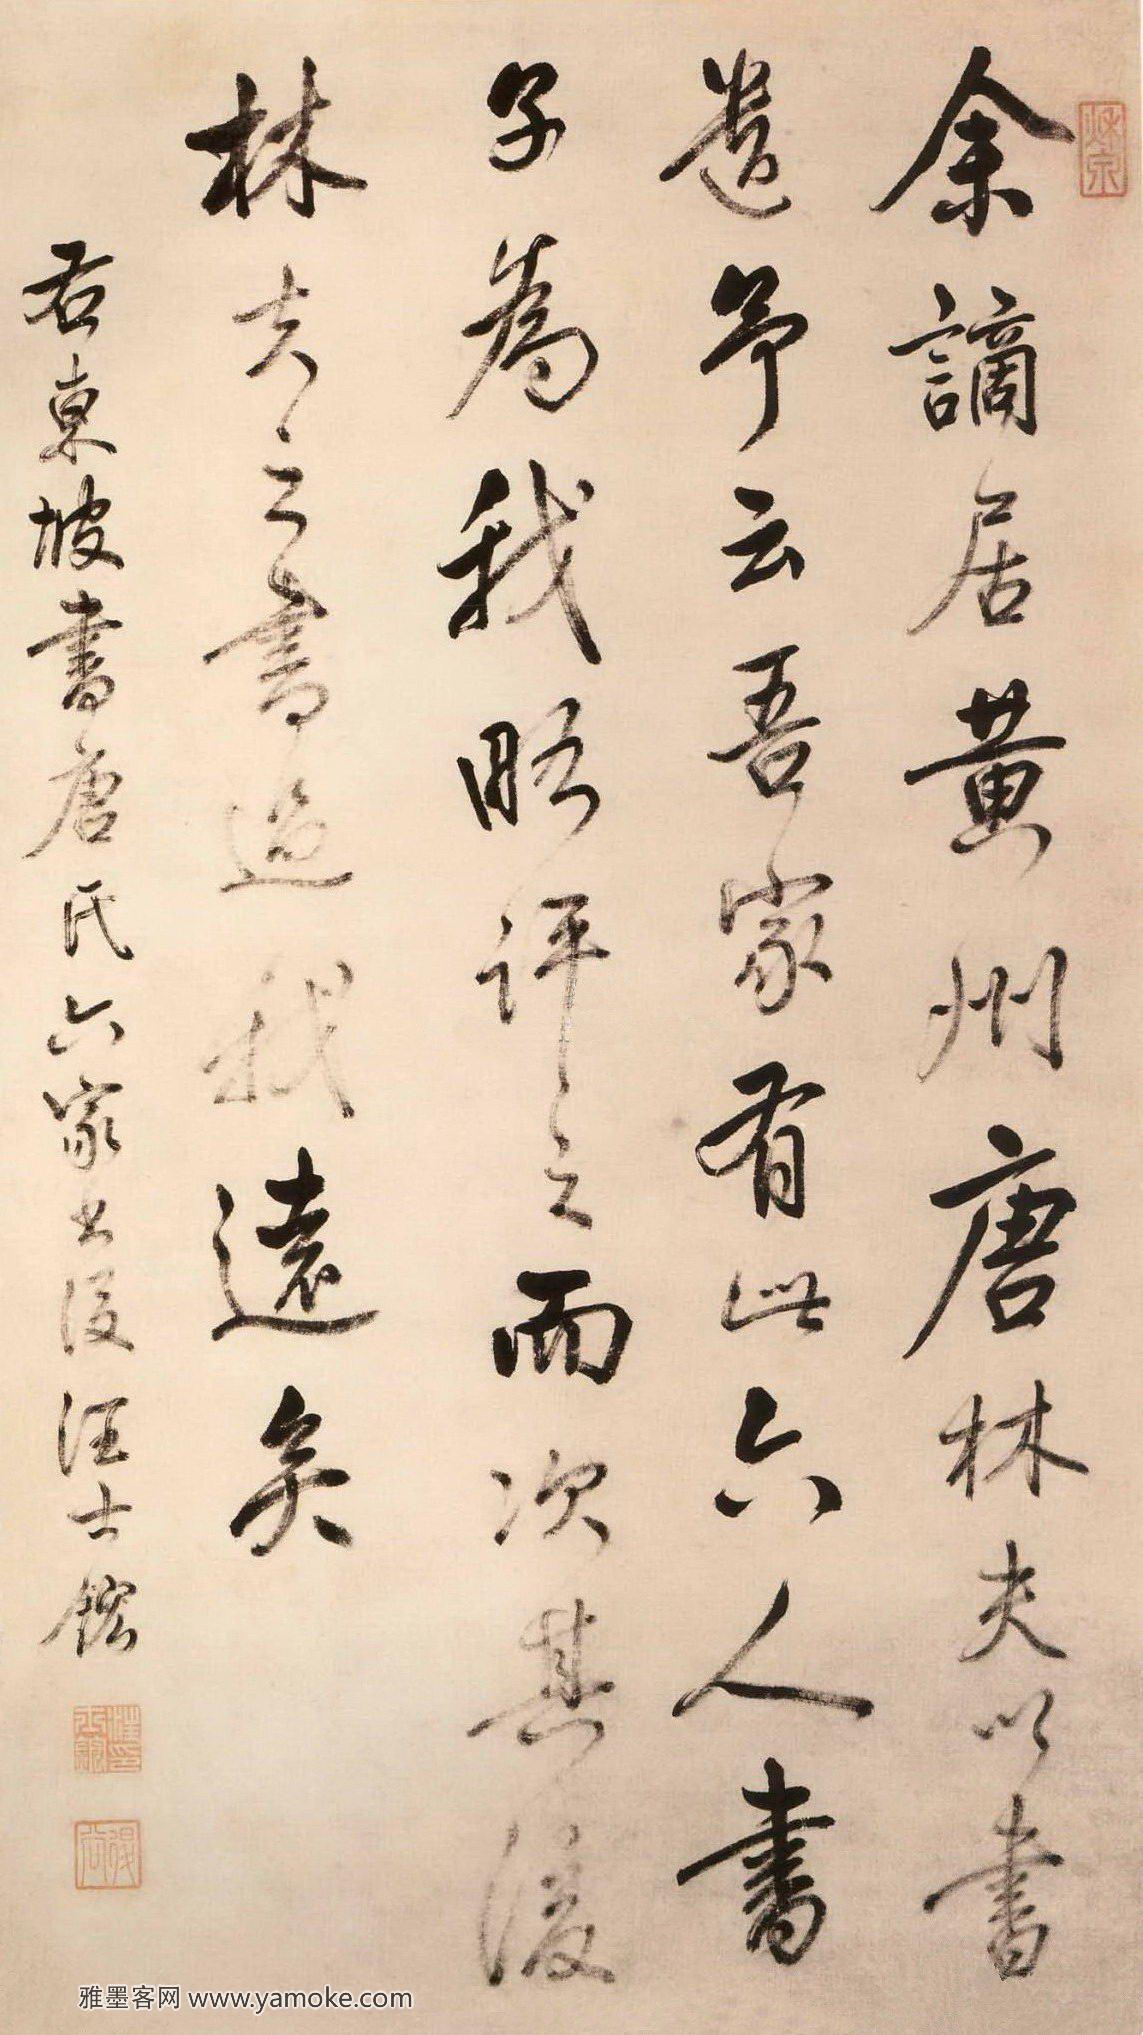 余謫居黃州唐林夫以書
遣予云吾家有此六人書
子為我略評之而次其後
林夫之書過我遠矣
右東坡書唐氏六家書後汪士鋐
雅墨客网 www.yamoke.com